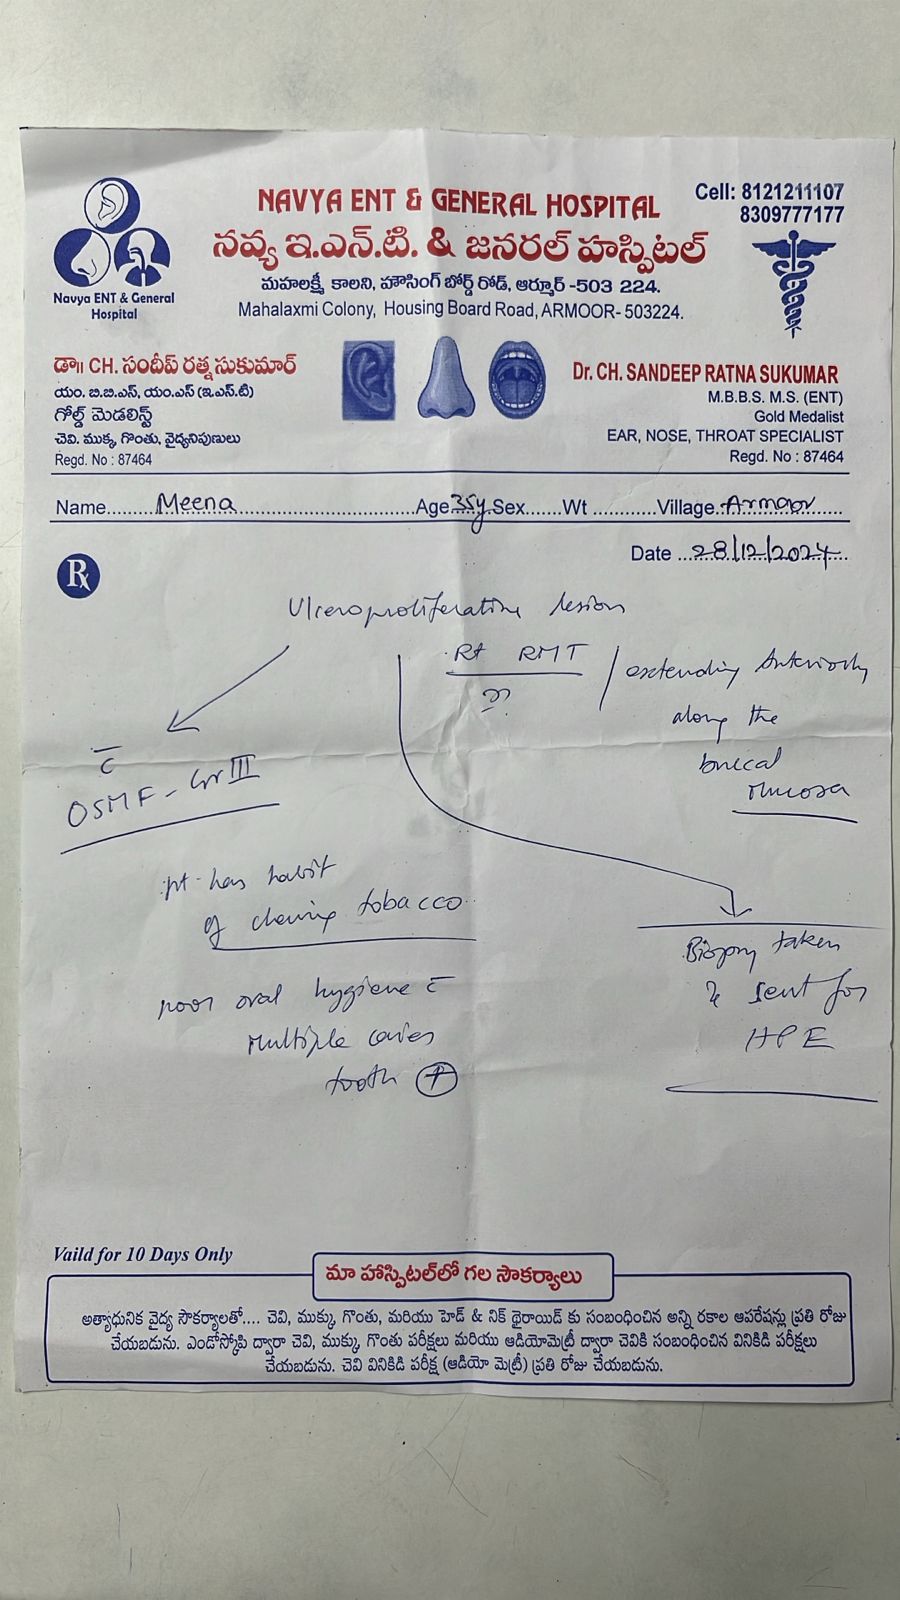 NAVYA ENT & GENERAL HOSPITAL
Cell: 8121211107
8309777177
నవ్య ఇ.ఎన్.టి. & జనరల్ హాస్పిటల్
మహలక్ష్మీ కాలని, హౌసింగ్ బోర్డ్ రోడ్, ఆర్మూర్ -503 224.
Mahalaxmi Colony, Housing Board Road, ARMOOR- 503224.
Navya ENT & General
Hospital
డా|| CH. సందీప్ రత్న సుకుమార్
యం. బి.బి.ఎస్, యం.ఎస్ (ఇ.ఎస్.టి)
గోల్డ్ మెడలిస్ట్
చెవి. ముక్కు, గొంతు, వైద్యనిపుణులు
Regd. No : 87464
Dr. CH. SANDEEP RATNA SUKUMAR
M.B.B.S. M.S. (ENT)
Gold Medalist
EAR, NOSE, THROAT SPECIALIST
Regd. No : 87464
Name Meena Age 35y Sex Wt Village Armoor
Date 28/12/2024
Rx
Ulceroproliferative lesion
Rt RMT / extending Anteriorly
along the
buccal
mucosa
c̄
OSMF - Gr III
pt has habit
of chewing tobacco
poor oral hygiene c̄
multiple caries
tooth +
Biopsy taken
& sent for
HPE
Vaild for 10 Days Only
మా హాస్పిటల్‌లో గల సౌకర్యాలు
అత్యాధునిక వైద్య సౌకర్యాలతో.... చెవి, ముక్కు, గొంతు, మరియు హెడ్ & నెక్ థైరాయిడ్ కు సంబంధించిన అన్ని రకాల ఆపరేషన్లు ప్రతి రోజు
చేయబడును. ఎండోస్కోపి ద్వారా చెవి, ముక్కు, గొంతు పరీక్షలు మరియు ఆడియోమెట్రీ ద్వారా చెవికి సంబంధించిన వినికిడి పరీక్షలు
చేయబడును. చెవి వినికిడి పరీక్ష (ఆడియో మెట్రీ) ప్రతి రోజు చేయబడును.